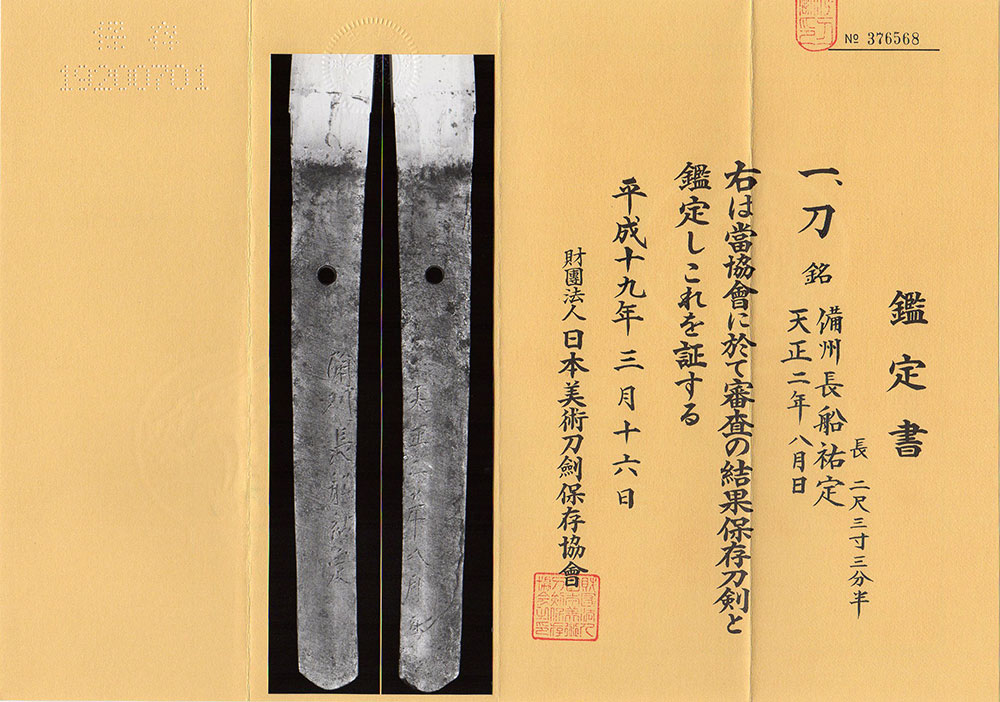 № 376568
鑑定書
一、刀 銘 備州長船祐定
天正二年八月日
長 二尺三寸三分半
右は當協會に於て審査の結果保存刀剣と
鑑定しこれを証する
平成十九年三月十六日
財團法人日本美術刀劍保存協會
保存
19200701
備州長船祐定
天正二年八月日